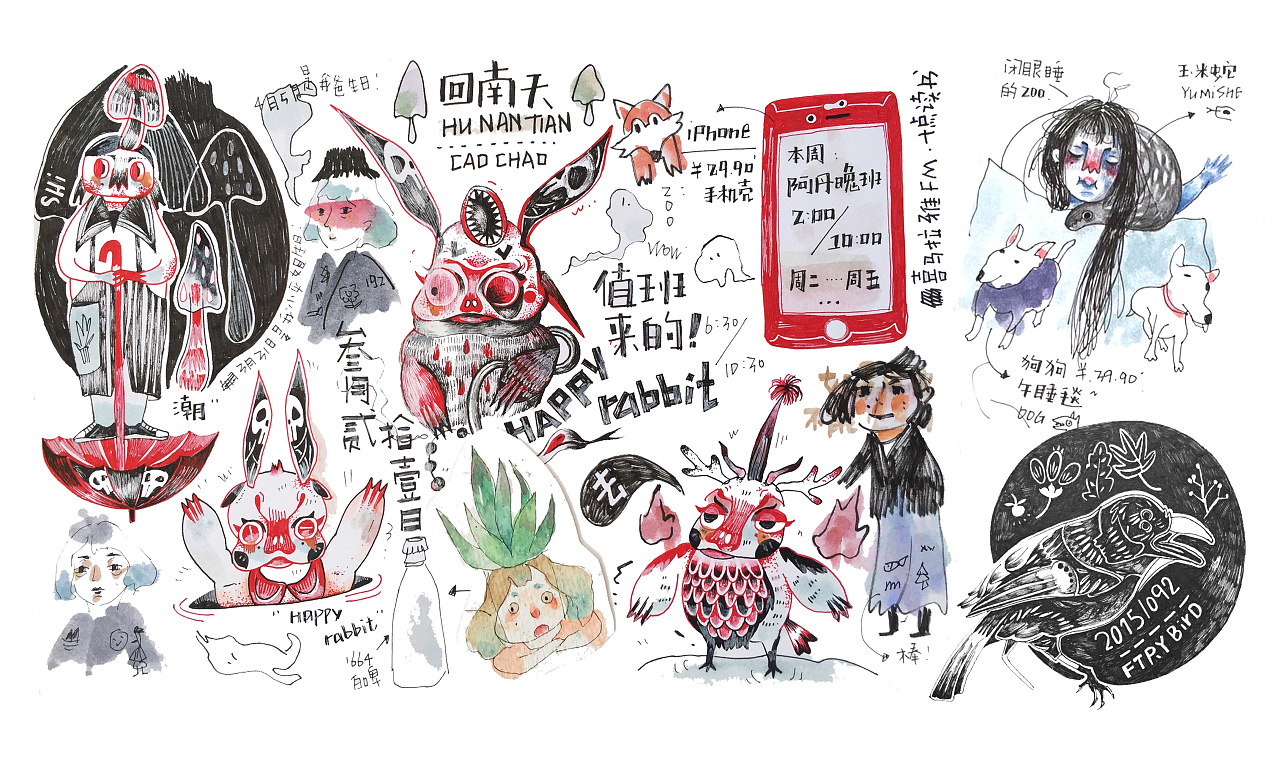 4月5日是我爸爸生日!
Hi!!S
潮"
192
叁月贰
拾壹日
回南天
HU NAN TIAN
CAO CHAO
iPhone
¥29.90
手机壳
ZOO
WOW
值班
来的!
6:30/
10:30
HAPPY
rabbit
本周:
阿丹晚班
2:00/
10:00
周二····周五
...
喜马拉雅FM·十点读书
闭眼睡
的ZOO.
玉米蛇
YUMISHE
狗狗¥29.90
午睡毯~
DOG
"HAPPY
rabbit"
1664
白啤
去
棒!
2015/092
FTRY BIRD